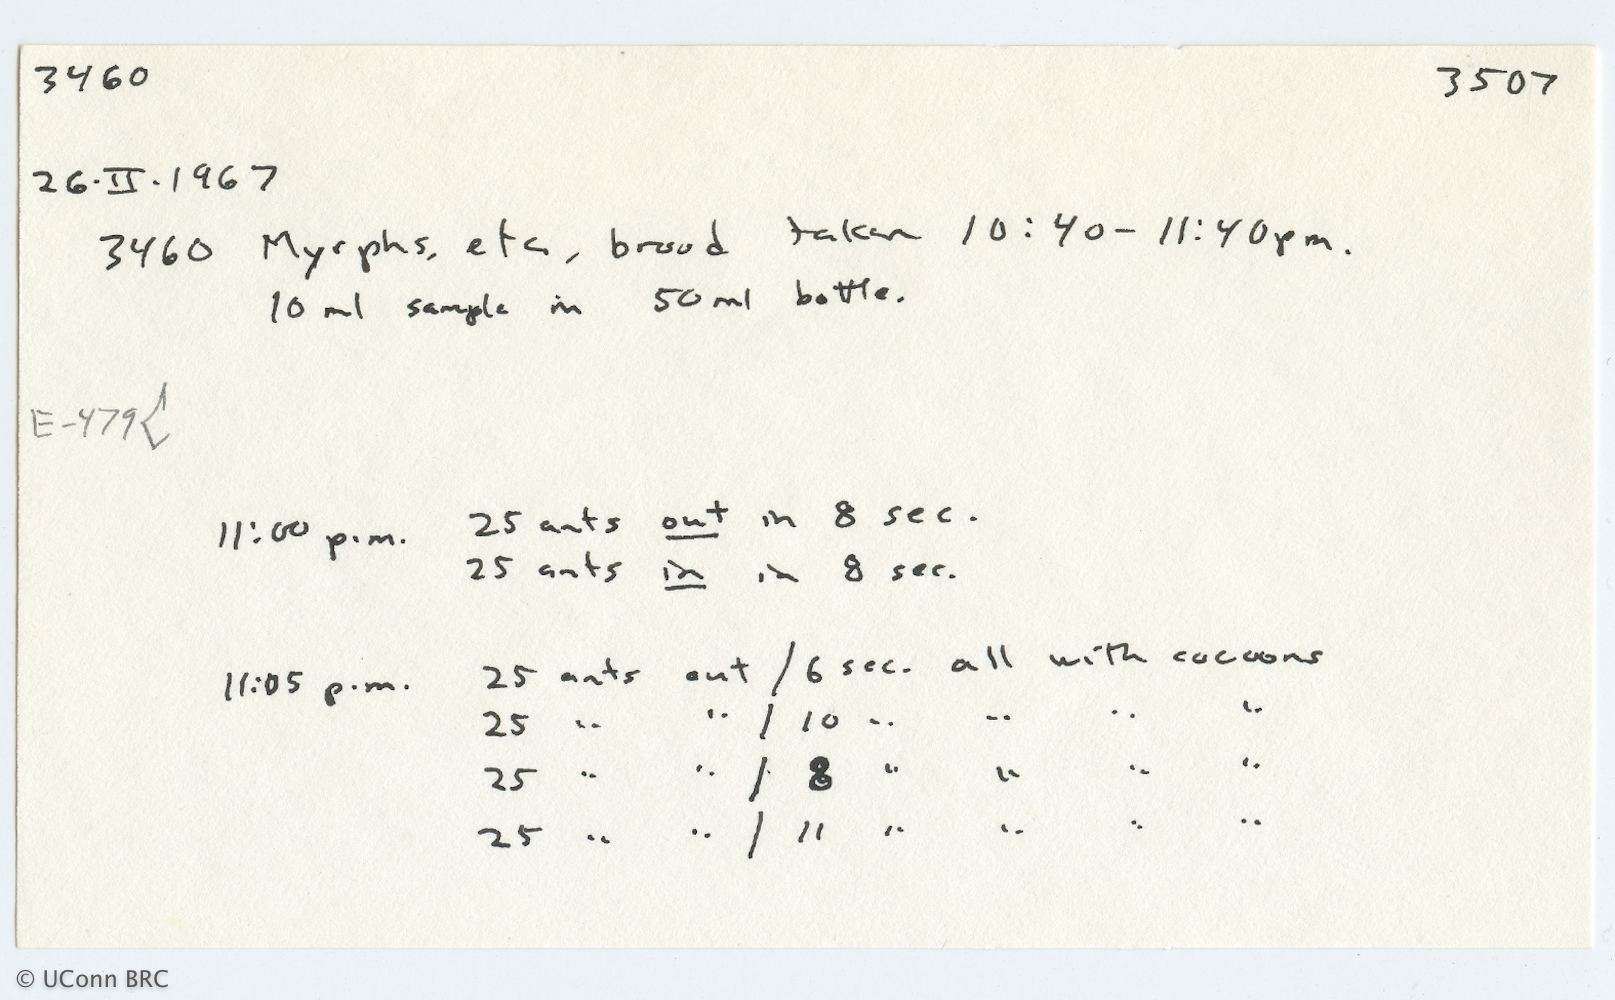 3460 3507
26·II·1967
3460 Myrphs, etc, brood taken 10:40-11:40pm.
10 ml sample in 50 ml bottle.
E-479{
11:00 p.m. 25 ants out in 8 sec.
25 ants in in 8 sec.
11:05 p.m. 25 ants out / 6 sec. all with cocoons
25 " " / 10 " " " "
25 " " / 8 " " " "
25 " " / 11 " " " "
© UConn BRC